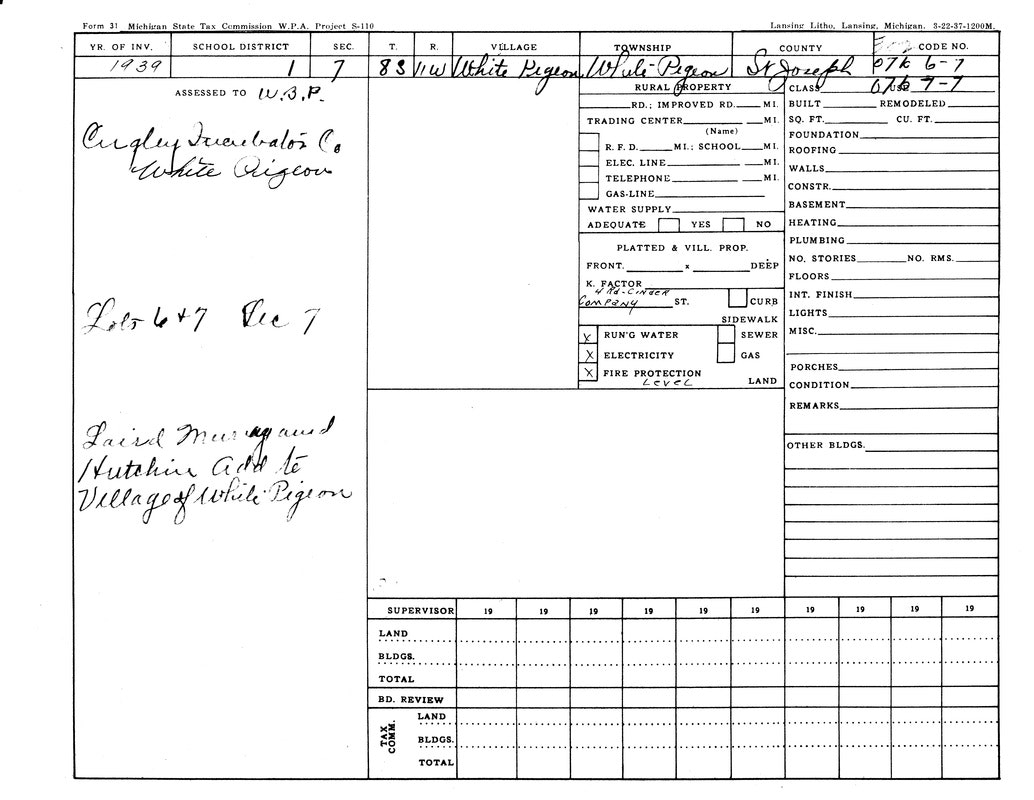 Form 31 Michigan State Tax Commission W.P.A. Project S-110 Lansing Litho, Lansing, Michigan. 3-22-37-1200M.
YR. OF INV. SCHOOL DISTRICT SEC. T. R. VILLAGE TOWNSHIP COUNTY CODE NO.
1939 1 7 8S 11W White Pigeon White Pigeon St Joseph 07k 6-7
07k 7-7
ASSESSED TO W.B.P.
Incubator Co
White Pigeon
Lots 6 + 7 Sec 7
Laird Murray and
Hutchin Add to
Village of White Pigeon
RURAL PROPERTY
RD.; IMPROVED RD. MI.
TRADING CENTER MI.
(Name)
R. F. D. MI.; SCHOOL MI.
ELEC. LINE MI.
TELEPHONE MI.
GAS-LINE
WATER SUPPLY
ADEQUATE YES NO
PLATTED & VILL. PROP.
FRONT. x DEEP
K. FACTOR
4 Rd-Cinder
Company ST. CURB
SIDEWALK
X RUN'G WATER SEWER
X ELECTRICITY GAS
X FIRE PROTECTION
Level LAND
CLASS USE
BUILT REMODELED
SQ. FT. CU. FT.
FOUNDATION
ROOFING
WALLS
CONSTR.
BASEMENT
HEATING
PLUMBING
NO. STORIES NO. RMS.
FLOORS
INT. FINISH
LIGHTS
MISC.
PORCHES
CONDITION
REMARKS
OTHER BLDGS.
SUPERVISOR 19 19 19 19 19 19 19 19 19 19
LAND
BLDGS.
TOTAL
BD. REVIEW
TAX COMM.
LAND
BLDGS.
TOTAL